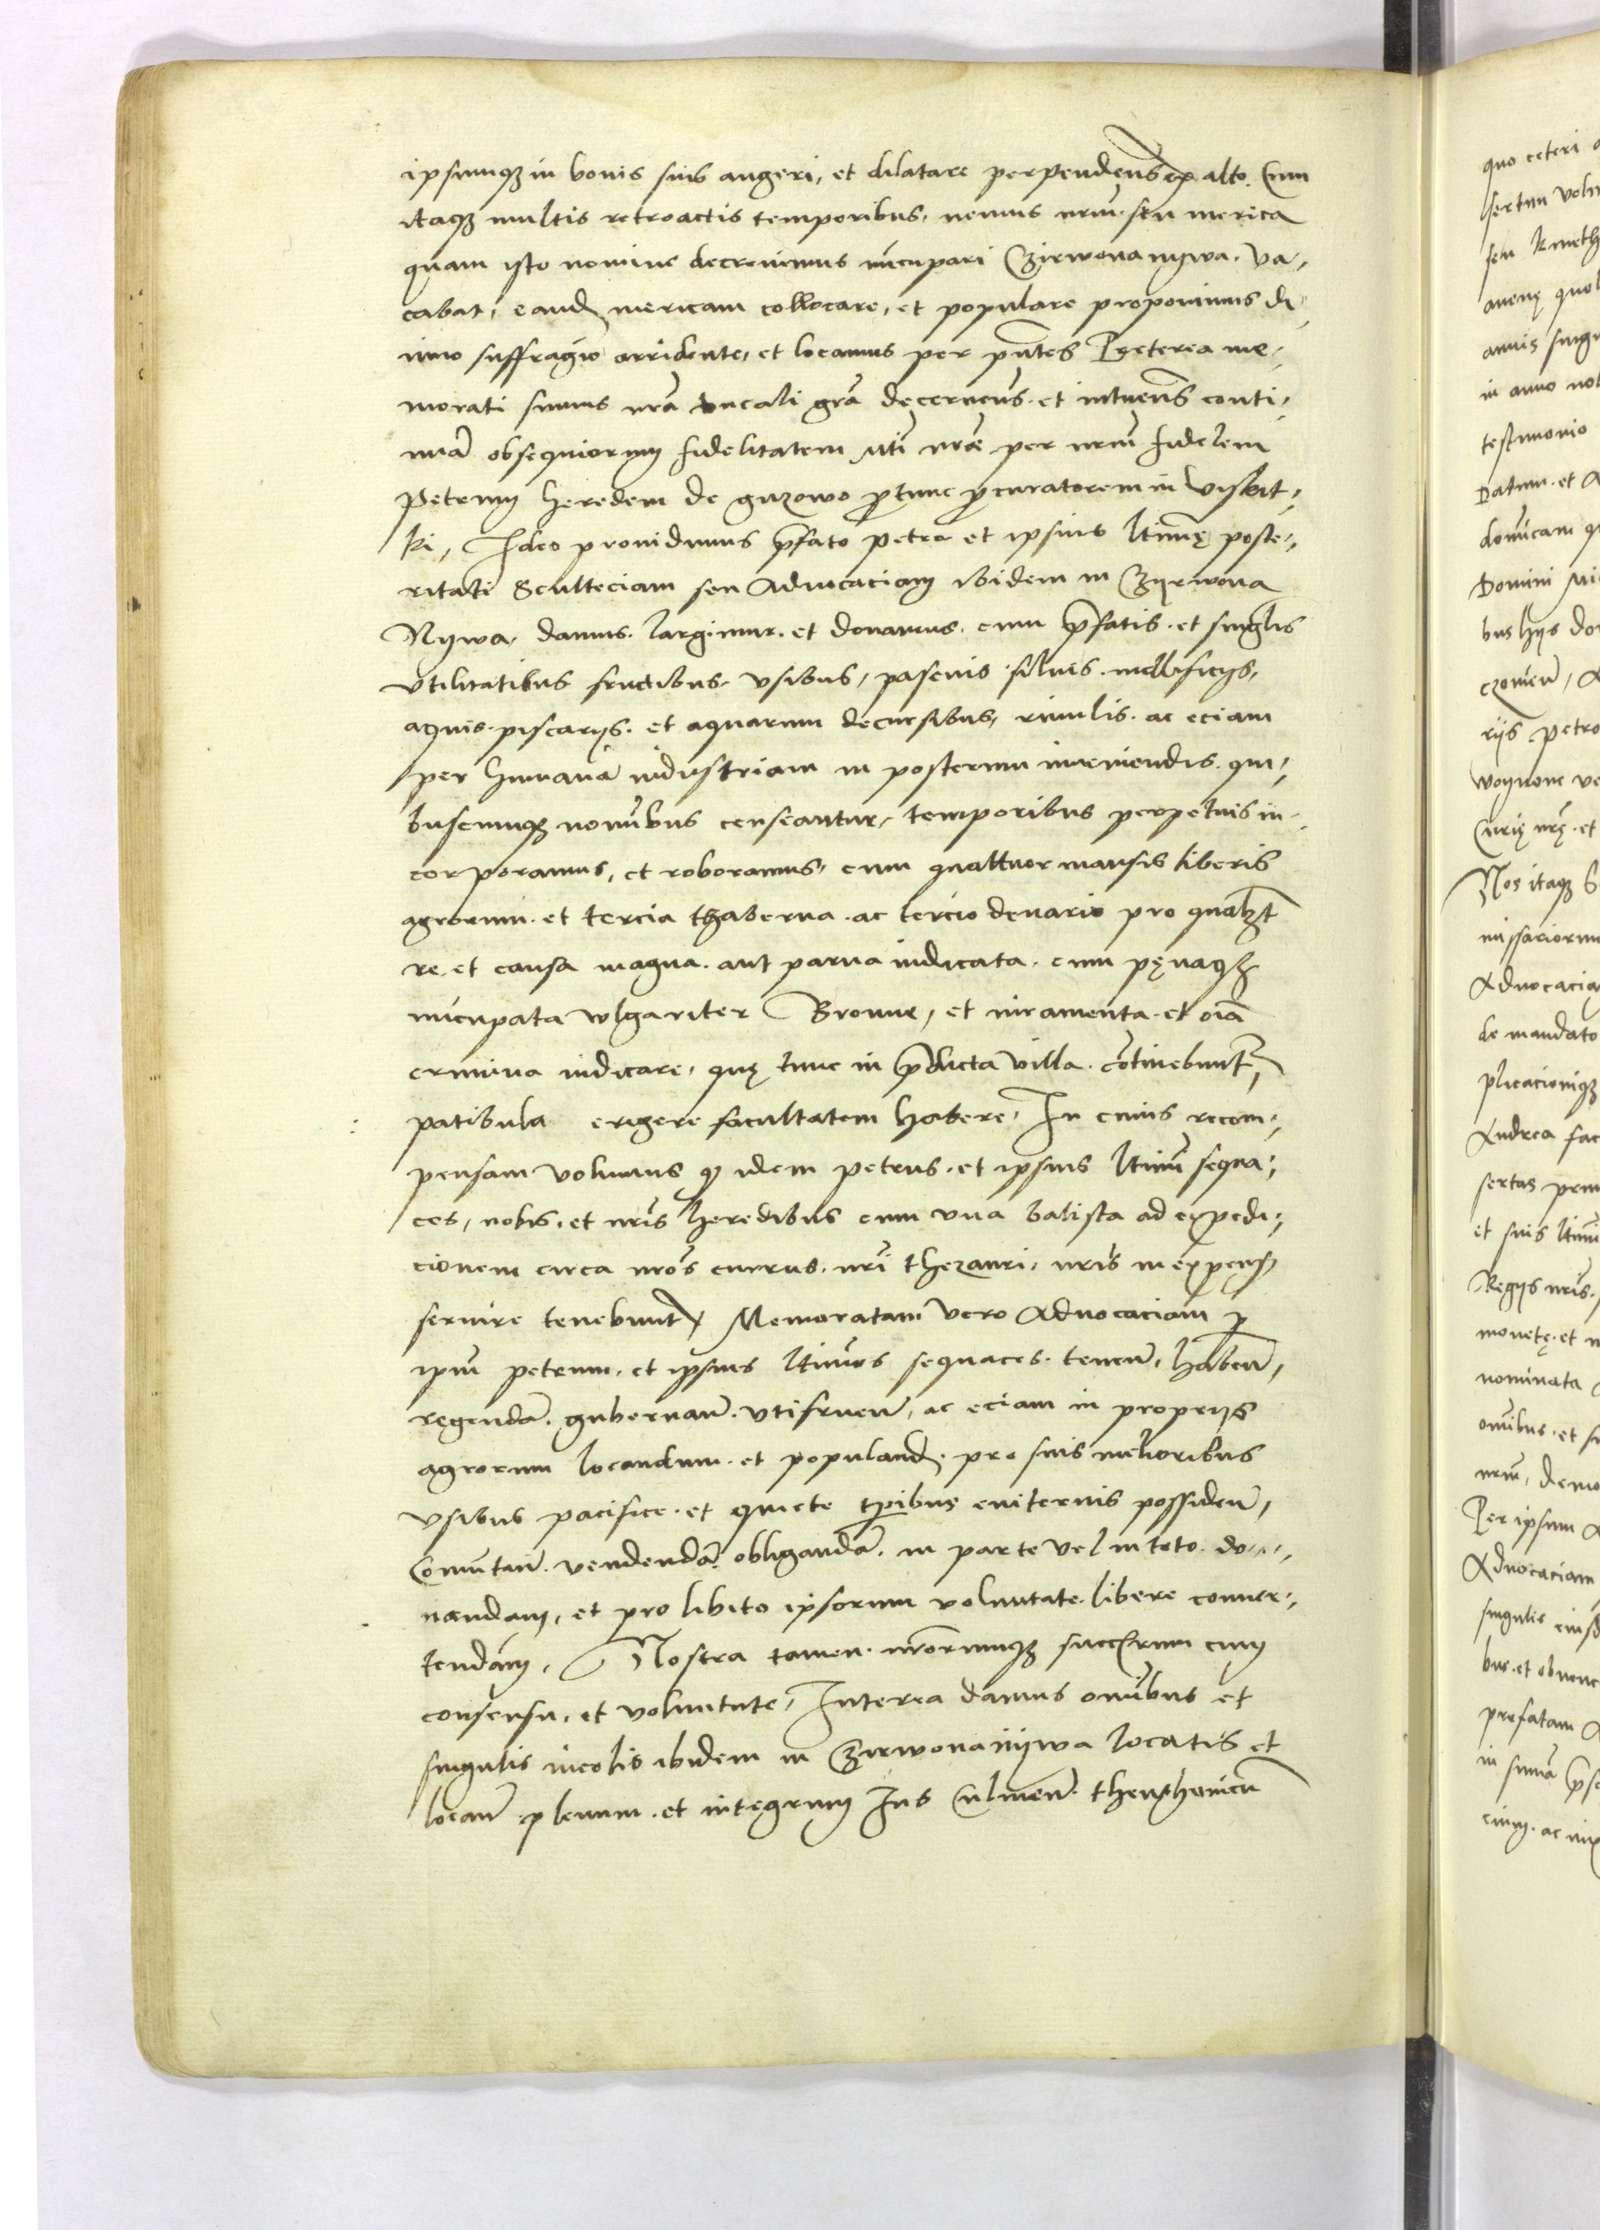 ipsumqʒ in bonis suis augeri, et dilatare perpendens ex alto. Cum
itaqʒ multis retroactis temporibus, nemus nrm̄ seu merica
quam isto nomine decreuimus nūcupari Czirwona nywa. Va-
cabat, eand mericam collocare, et populare proponimus di-
uino suffragio arridente, et locamus per pn̄tes Pręterea me-
morati sumus nrā ducali grā decernens. et intuens conti-
nuā obsequiorum fidelitatem per nrm̄ fidelem
Petrum heredem de guzowo p̄tunc p̄curatorem in Viskit-
ki, Ideo prouidimus p̄fato Petro et ipsius ltimę poste-
ritati Sculteciam seu Aduocaciam ibidem in Czyrwona
Nywa, damus. largimur. et donamus. cum p̄fatis. et singlis
vtilitatibus fructibus. vsibus, pascuis siluis. mellificijs,
aquis. piscarijs. et aquarum decursibus, riuulis. ac eciam
per humanā industriam in posterum inueniendis. qui-
buscumqʒ noībus censeantur, temporibus perpetuis in-
corporamus, et roboramus, cum quattuor mansis liberis
agrorum. et tercia thaberna. ac tercio denario pro qualʒt
re. et causa magna. aut parua iudicata. cum pęnaqʒ
nūcupata wlgariter Bronne, et iuramenta. et oīa
crimina iudicare, quę tunc in p̄dicta villa. cōtinebuntr
patibula erigere facultatem habere, In cuius recom-
pensam volumus qͩ idem Petrus. et ipsius ltimi sequa-
ces, nobis. et nrīs heredibus cum vna balista ad expedi-
cionem circa nros currus. nrī thezauri, nris in expens
seruire tenebuntr, Memoratam vero Aduocaciam p
ipm̄ Petrum. et ipsius ltimos sequaces. tenen̄, haben̄,
regendā. gubernan̄. vtifruen̄, ac eciam in proprijs
agrorum locandum. et populand. pro suis melioribus
vsibus pacifice. et quiete tpribus euiternis possiden̄,
Comūtan̄. vendendā. obligandā. in parte vel in toto. do-
nandam, et pro libito ipsorum voluntate. libere conuer-
tendam, Nostra tamen. nrorumqʒ succrum cum
consensu, et voluntate, Interea damus omībus et
singulis incolis ibidem in Czirwona nywa locatis et
locan̄. plenum. et integrum Ius Culmen̄. theuthonicū

quo ceteri
sertim volu
seu kmeth
auenę quol
annis singu
in anno no
testimonio
Datum. et A
domīcam q
Domini Mi
bus hijs do
czouien̄,
rijs Petro
woynone
Curię nrę. et
Nos itaqʒ
missariorum
Aduocacia
de mandato
plicacioniqʒ
Andrea fac
sertas pro
et suis ltimi
Regijs nris.
monetę. et
nominata
omībus. et
nrm̄, demo
Per ipsum
Aduocaciam
singulis
bus. et obuenc
prefatam
in summa